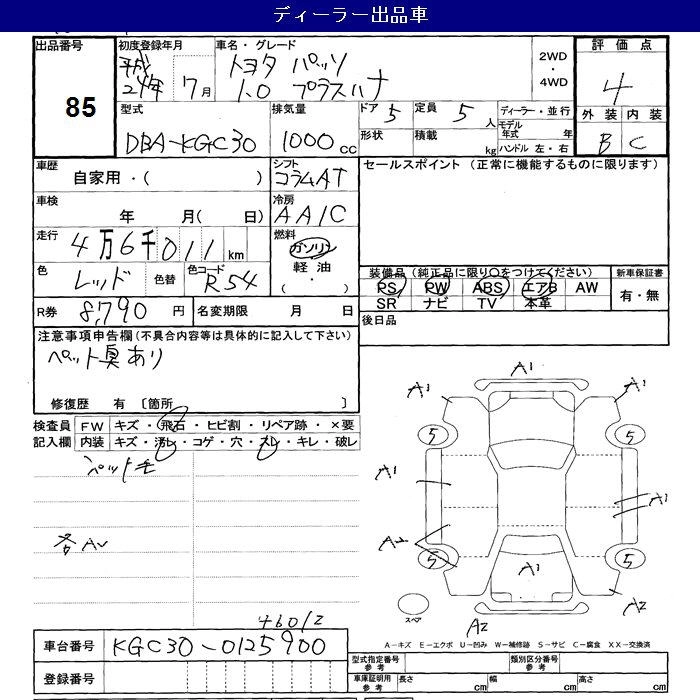 ディーラー出品車
出品番号 初度登録年月 車名・グレード 2WD 評価点
85 平成24年 7月 トヨタ パッソ ・ 4
1.0 プラスハナ 4WD 外装 内装
型式 排気量 ドア 5 定員 5人 ディーラー・並行 B C
DBA-KGC30 1000cc 形状 積載 kg モデル年式 年
ハンドル 左・右
車歴 シフト セールスポイント (正常に機能するものに限ります)
自家用・( ) コラムAT
車検 冷房
年 月( 日) AAC
走行 燃料
4万6千011km ガソリン
色 色替 色コード 軽油
レッド R54 ( ・ )
装備品 (純正品に限り○をつけてください) 新車保証書
PS PW ABS エアB AW 有・無
SR ナビ TV 本革
R券 8,790円 名変期限 月 日 後日品
注意事項申告欄 (不具合内容等は具体的に記入して下さい)
ペット臭あり
修復歴 有 〔箇所 〕
検査員 FW キズ・飛石・ヒビ割・リペア跡・×要
記入欄 内装 キズ・汚レ・コゲ・穴・スレ・キレ・破レ
ペット毛
各AU
46012
A1
A1 A1
5 5
A1 A1
A2
5 A1 5
スペア
A2 A2
A-キズ E-エクボ U-凹み W-補修跡 S-サビ C-腐食 XX-交換済
車台番号 KGC30-0125900
型式指定番号 参考 類別区分番号 参考
登録番号
車庫証明用 参考 長さ cm 幅 cm 高さ cm